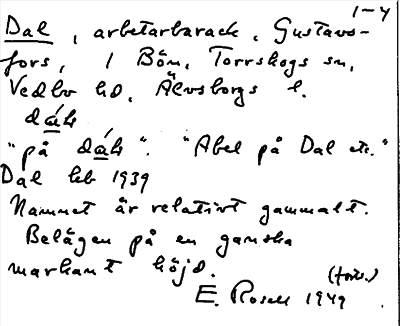 1-4
Dal, arbetarbarack, Gustavs-
fors, 1 Bön, Torrskogs sn,
Vedbo hd, Älvsborgs l.
"på
". "Abel på Dal etc."
Dal kb 1939
Namnet är relativt gammalt.
Belägen på en ganska
markant höjd.
(forts.)
E. Rosell 1949